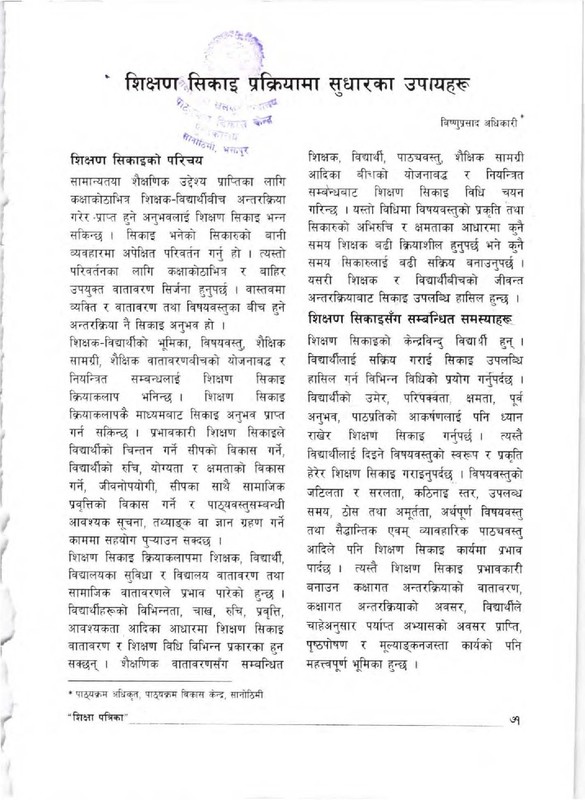 शिक्षण सिकाइ प्रक्रियामा सुधारका उपायहरू
विष्णुप्रसाद अधिकारी*
शिक्षण सिकाइको परिचय
सामान्यतया शैक्षणिक उद्देश्य प्राप्तिका लागि
कक्षाकोठाभित्र शिक्षक-विद्यार्थीबीच अन्तरक्रिया
गरेर प्राप्त हुने अनुभवलाई शिक्षण सिकाइ भन्न
सकिन्छ । सिकाइ भनेको सिकारुको बानी
व्यवहारमा अपेक्षित परिवर्तन गर्नु हो । त्यस्तो
परिवर्तनका लागि कक्षाकोठाभित्र र बाहिर
उपयुक्त वातावरण सिर्जना हुनुपर्छ । वास्तवमा
व्यक्ति र वातावरण तथा विषयवस्तुका बीच हुने
अन्तरक्रिया नै सिकाइ अनुभव हो ।
शिक्षक-विद्यार्थीको भूमिका, विषयवस्तु, शैक्षिक
सामग्री, शैक्षिक वातावरणबीचको योजनाबद्ध र
नियन्त्रित सम्बन्धलाई शिक्षण सिकाइ
क्रियाकलाप भनिन्छ । शिक्षण सिकाइ
क्रियाकलापकै माध्यमबाट सिकाइ अनुभव प्राप्त
गर्न सकिन्छ । प्रभावकारी शिक्षण सिकाइले
विद्यार्थीको चिन्तन गर्ने सीपको विकास गर्ने,
विद्यार्थीको रुचि, योग्यता र क्षमताको विकास
गर्ने, जीवनोपयोगी, सीपका साथै सामाजिक
प्रवृत्तिको विकास गर्ने र पाठ्यवस्तुसम्बन्धी
आवश्यक सूचना, तथ्याङ्क वा ज्ञान ग्रहण गर्ने
काममा सहयोग पुऱ्याउन सक्दछ ।
शिक्षण सिकाइ क्रियाकलापमा शिक्षक, विद्यार्थी,
विद्यालयका सुविधा र विद्यालय वातावरण तथा
सामाजिक वातावरणले प्रभाव पारेको हुन्छ ।
विद्यार्थीहरूको विभिन्नता, चाख, रुचि, प्रवृत्ति,
आवश्यकता आदिका आधारमा शिक्षण सिकाइ
वातावरण र शिक्षण विधि विभिन्न प्रकारका हुन
सक्छन् । शैक्षणिक वातावरणसंग सम्बन्धित
शिक्षक, विद्यार्थी, पाठ्यवस्तु, शैक्षिक सामग्री
आदिका बीचको योजनाबद्ध र नियन्त्रित
सम्बन्धबाट शिक्षण सिकाइ विधि चयन
गरिन्छ । यस्तो विधिमा विषयवस्तुको प्रकृति तथा
सिकारुको अभिरुचि र क्षमताका आधारमा कुनै
समय शिक्षक बढी क्रियाशील हुनुपर्छ भने कुनै
समय सिकारुलाई बढी सक्रिय बनाउनुपर्छ ।
यसरी शिक्षक र विद्यार्थीबीचको जीवन्त
अन्तरक्रियाबाट सिकाइ उपलब्धि हासिल हुन्छ ।
शिक्षण सिकाइसँग सम्बन्धित समस्याहरू
शिक्षण सिकाइको केन्द्रविन्दु विद्यार्थी हुन् ।
विद्यार्थीलाई सक्रिय गराई सिकाइ उपलब्धि
हासिल गर्न विभिन्न विधिको प्रयोग गर्नुपर्दछ ।
विद्यार्थीको उमेर, परिपक्वता, क्षमता, पूर्व
अनुभव, पाठप्रतिको आकर्षणलाई पनि ध्यान
राखेर शिक्षण सिकाइ गर्नुपर्छ । त्यस्तै
विद्यार्थीलाई दिइने विषयवस्तुको स्वरूप र प्रकृति
हेरेर शिक्षण सिकाइ गराइनुपर्दछ । विषयवस्तुको
जटिलता र सरलता, कठिनाइ स्तर, उपलब्ध
समय, ठोस तथा अमूर्तता, अर्थपूर्ण विषयवस्तु
तथा सैद्धान्तिक एवम् व्यावहारिक पाठ्यवस्तु
आदिले पनि शिक्षण सिकाइ कार्यमा प्रभाव
पार्दछ । त्यस्तै शिक्षण सिकाइ प्रभावकारी
बनाउन कक्षागत अन्तरक्रियाको वातावरण,
कक्षागत अन्तरक्रियाको अवसर, विद्यार्थीले
चाहेअनुसार पर्याप्त अभ्यासको अवसर प्राप्ति,
पृष्ठपोषण र मूल्याङ्कनजस्ता कार्यको पनि
महत्त्वपूर्ण भूमिका हुन्छ ।
* पाठ्यक्रम अधिकृत, पाठ्यक्रम विकास केन्द्र, सानोठिमी
"शिक्षा पत्रिका"
७१